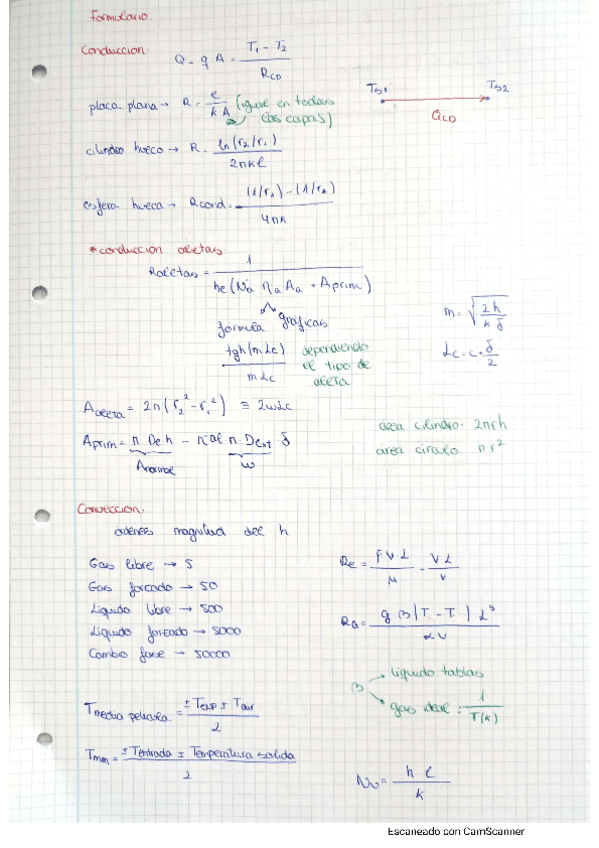 Formulario.
Conduccion:
Q = q A = (T1 - T2) / RCD
placa plana → R = e / kA (igual en todas las capas)
Ts1 Ts2
QCD
cilindro hueco → R = ln(r2/r1) / 2πkl
esfera hueca → Rcond = (1/r1) - (1/r2) / 4πk
*conduccion aletas
Raletas = 1 / he(Na ηa Aa + Aprim)
formula gráficas
tgh(mLc) / mLc
dependiendo
el tipo de
aleta
m = √(2h / k δ)
Lc = L + δ/2
Aaleta = 2π(r2² - r1²) ≅ 2wLc
Aprim = π De h - nº al π Dext · δ
w
area cilindro: 2πrh
area circulo πr²
Conveccion:
ordenes magnitud del h
Gas libre → 5
Gas forzado → 50
Liquido libre → 500
Liquido forzado → 5000
Cambio fase → 50000
Re = ρVL / μ = VL / ν
Ra = g β |T - T | L³ / αν
β
liquido tablas
gas ideal: 1 / T(k)
Tmedia pelicula = ± Tsup ± Tair / 2
Tmm = ± Tentrada ± Temperatura salida / 2
Nu = h L / k
Escaneado con CamScanner